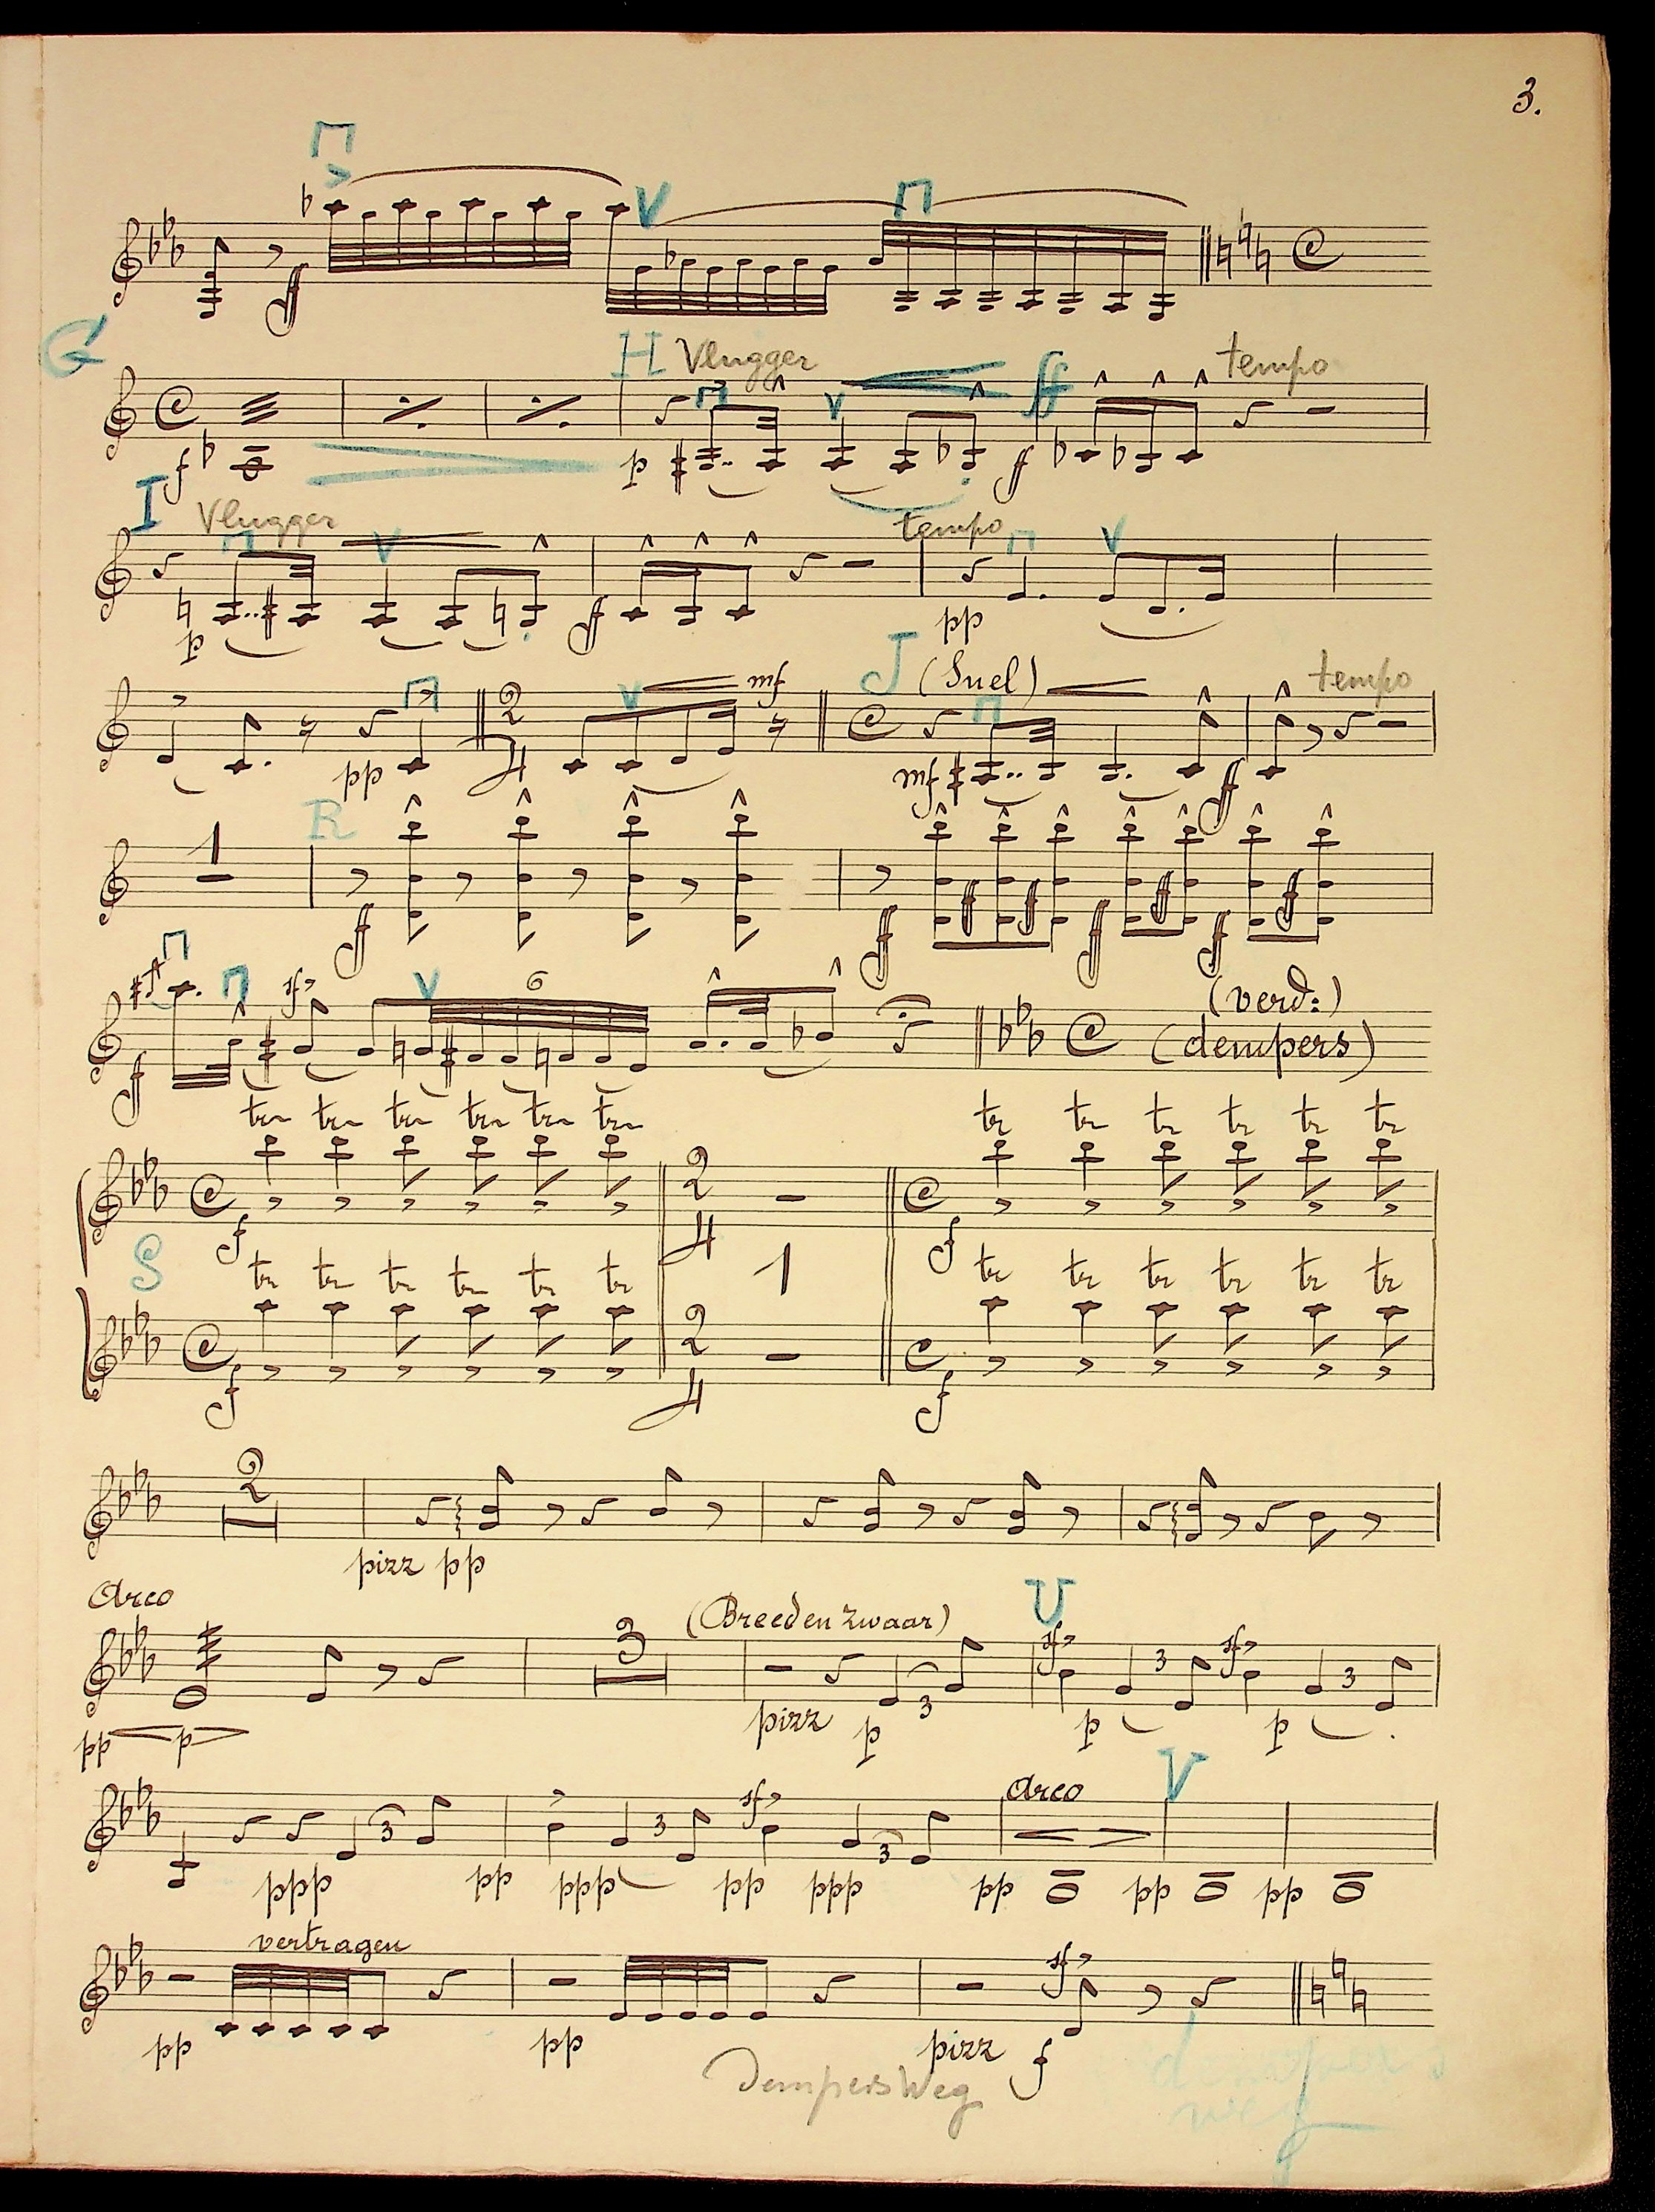 3.
ff
G H Vlugger ff tempo
f p f
I Vlugger tempo
p ff pp
J (Snel) mf tempo
2 4 pp mf ff
1 R
ff ff ff ff ff ff ff ff
sf 6 (verd:)
ff (dempers)
tr tr tr tr tr tr tr tr tr tr tr tr
2 4
f f
S 1
tr tr tr tr tr tr tr tr tr tr tr tr
2 4
f f
2
pizz pp
Arco 3 (Breed en zwaar) U sf 3 sf 3
pp p pizz p 3 p p
3 3 sf 3 Arco V
ppp pp ppp pp ppp pp pp pp
vertragen sf
pp pp pizz f
Dempers Weg dempers
weg